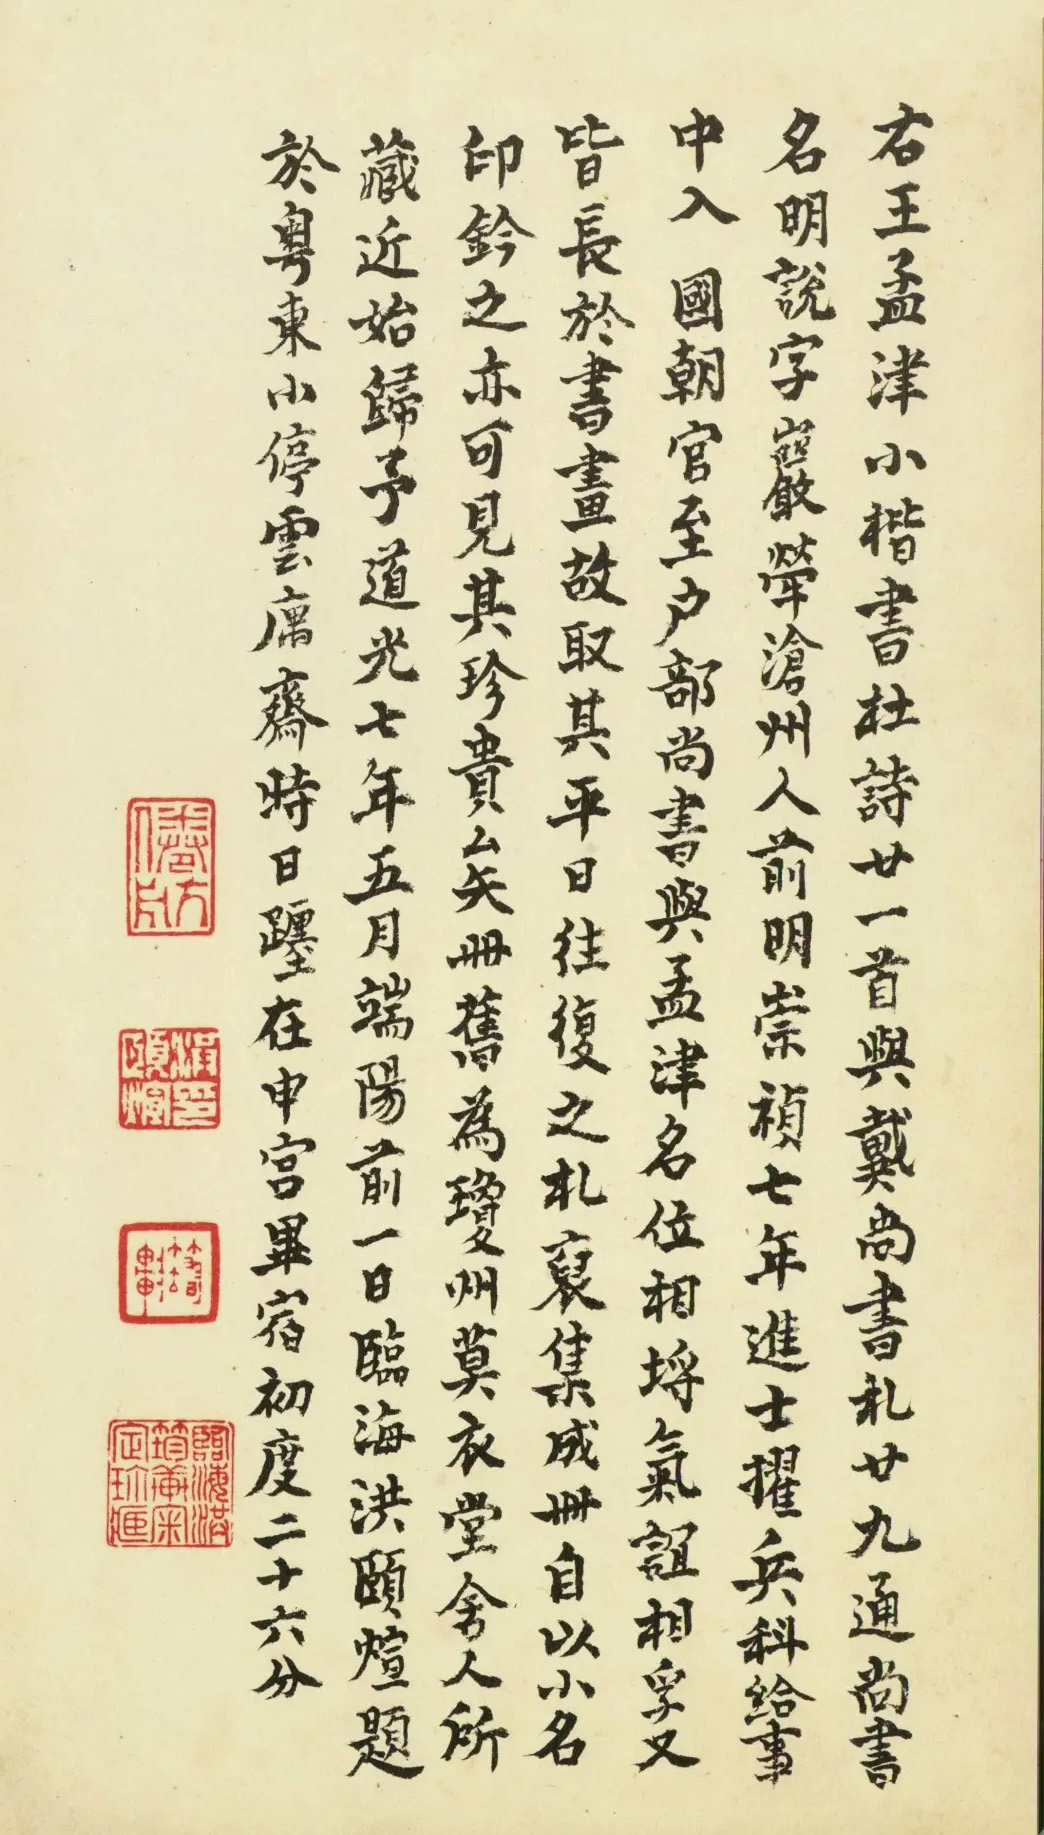 右王孟津小楷書杜詩廿一首與戴尚書札廿九通尚書
名明說字巖犖滄州人前明崇禎七年進士擢兵科給事
中入 國朝官至户部尚書與孟津名位相埒氣誼相孚又
皆長於書畫故取其平日往復之札裒集成冊自以小名
印鈐之亦可見其珍貴矣冊舊為瓊州莫衣堂舍人所
藏近始歸予道光七年五月端陽前一日臨海洪頤煊題
於粵東小停雲庽齋時日躔在申宮畢宿初度二十六分
臨海洪筠軒宋定珍